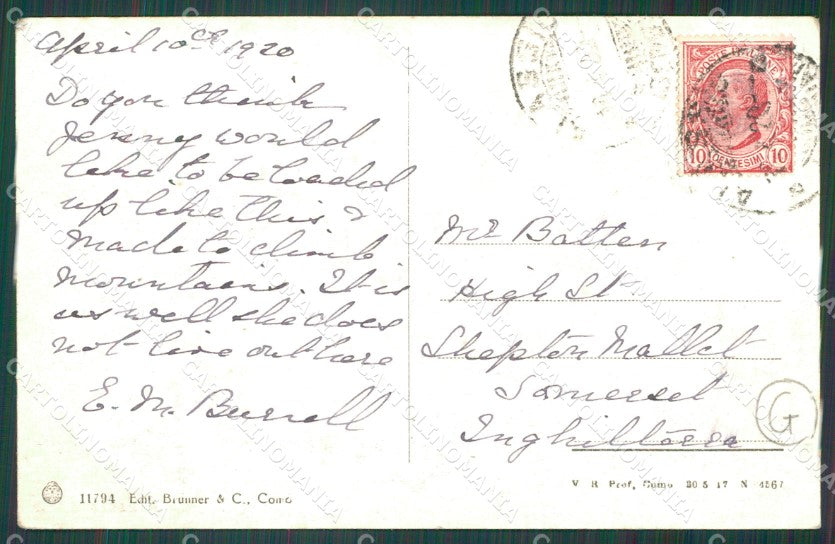 April 10th 1920
Do you think
Jenny would
like to be loaded
up like this &
made to climb
mountains. It is
as well she does
not live out here
E. M. Burrell
POSTE ITALIANE
10 CENTESIMI 10
Mr Batten
High St
Shepton Mallet
Somerset
Inghilterra
G
11794 Edit. Brunner & C., Como
V. R. Pref. Como 30 5 17 N 4567
CARTOLINOMANIA